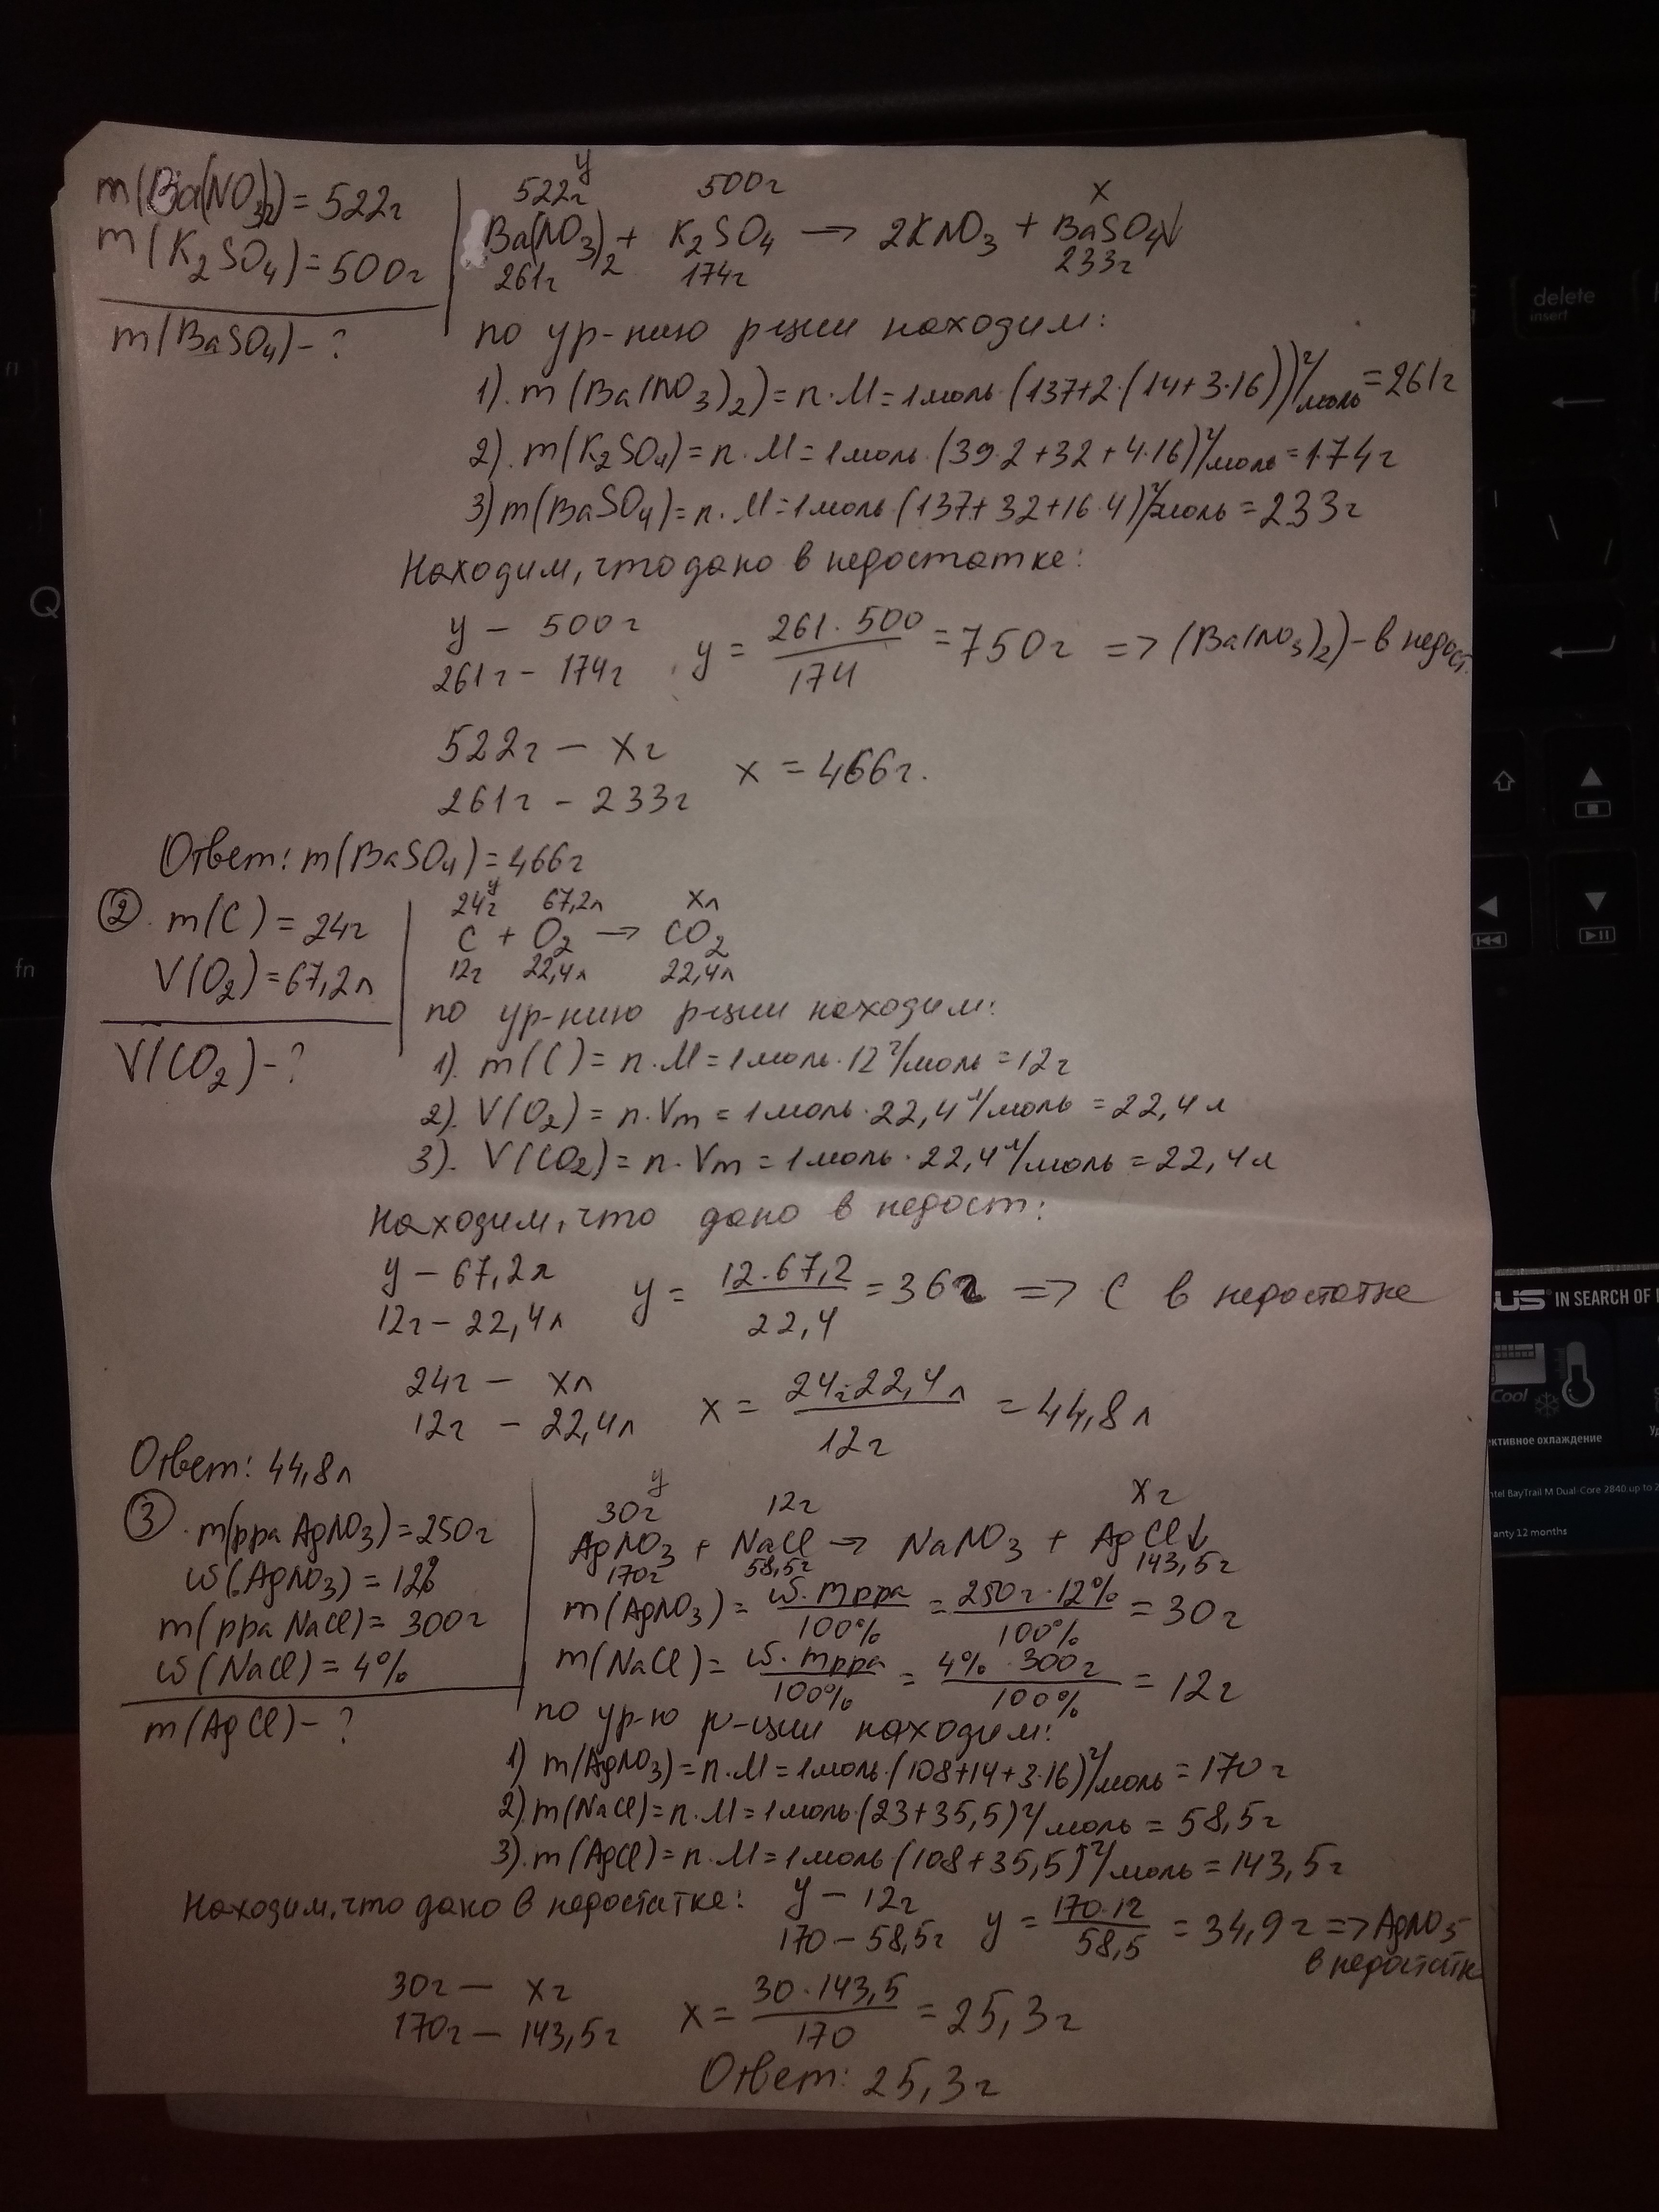 m(Ba(NO3)2) = 522г
m(K2SO4) = 500г
m(BaSO4) - ?
y
522г 500г x
Ba(NO3)2 + K2SO4 → 2KNO3 + BaSO4↓
261г 174г 233г
по ур-нию р-ции находим:
1). m(Ba(NO3)2) = n·M = 1моль·(137+2·(14+3·16))г/моль = 261г
2). m(K2SO4) = n·M = 1моль·(39·2+32+4·16)г/моль = 174г
3) m(BaSO4) = n·M = 1моль·(137+32+16·4)г/моль = 233г
Находим, что дано в недостатке:
y - 500г
261г - 174г
y = 261·500/174 = 750г => (Ba(NO3)2) - в недост.
522г - xг
261г - 233г
x = 466г.
Ответ: m(BaSO4) = 466г
②. m(C) = 24г
V(O2) = 67,2л
V(CO2) - ?
y
24г 67,2л xл
C + O2 → CO2
12г 22,4л 22,4л
по ур-нию р-ции находим:
1). m(C) = n·M = 1моль·12г/моль = 12г
2). V(O2) = n·Vm = 1моль·22,4л/моль = 22,4л
3). V(CO2) = n·Vm = 1моль·22,4л/моль = 22,4л
Находим, что дано в недост:
y - 67,2л
12г - 22,4л
y = 12·67,2/22,4 = 36г => C в недостатке
24г - xл
12г - 22,4л
x = 24г·22,4л/12г = 44,8л
Ответ: 44,8л
③. m(рра AgNO3) = 250г
ω(AgNO3) = 12%
m(рра NaCl) = 300г
ω(NaCl) = 4%
m(AgCl) - ?
y
30г 12г xг
AgNO3 + NaCl → NaNO3 + AgCl↓
170г 58,5г 143,5г
m(AgNO3) = ω·mрра/100% = 250г·12%/100% = 30г
m(NaCl) = ω·mрра/100% = 4%·300г/100% = 12г
по ур-ю р-ции находим:
1) m(AgNO3) = n·M = 1моль·(108+14+3·16)г/моль = 170г
2) m(NaCl) = n·M = 1моль·(23+35,5)г/моль = 58,5г
3). m(AgCl) = n·M = 1моль·(108+35,5)г/моль = 143,5г
Находим, что дано в недостатке:
y - 12г
170 - 58,5г
y = 170·12/58,5 = 34,9г => AgNO3
в недостатк
30г - xг
170г - 143,5г
x = 30·143,5/170 = 25,3г
Ответ: 25,3г
delete
insert
Q
fn
US IN SEARCH OF
Cool
ективное охлаждение
ntel BayTrail M Dual-Core 2840,up to 2
anty 12 months